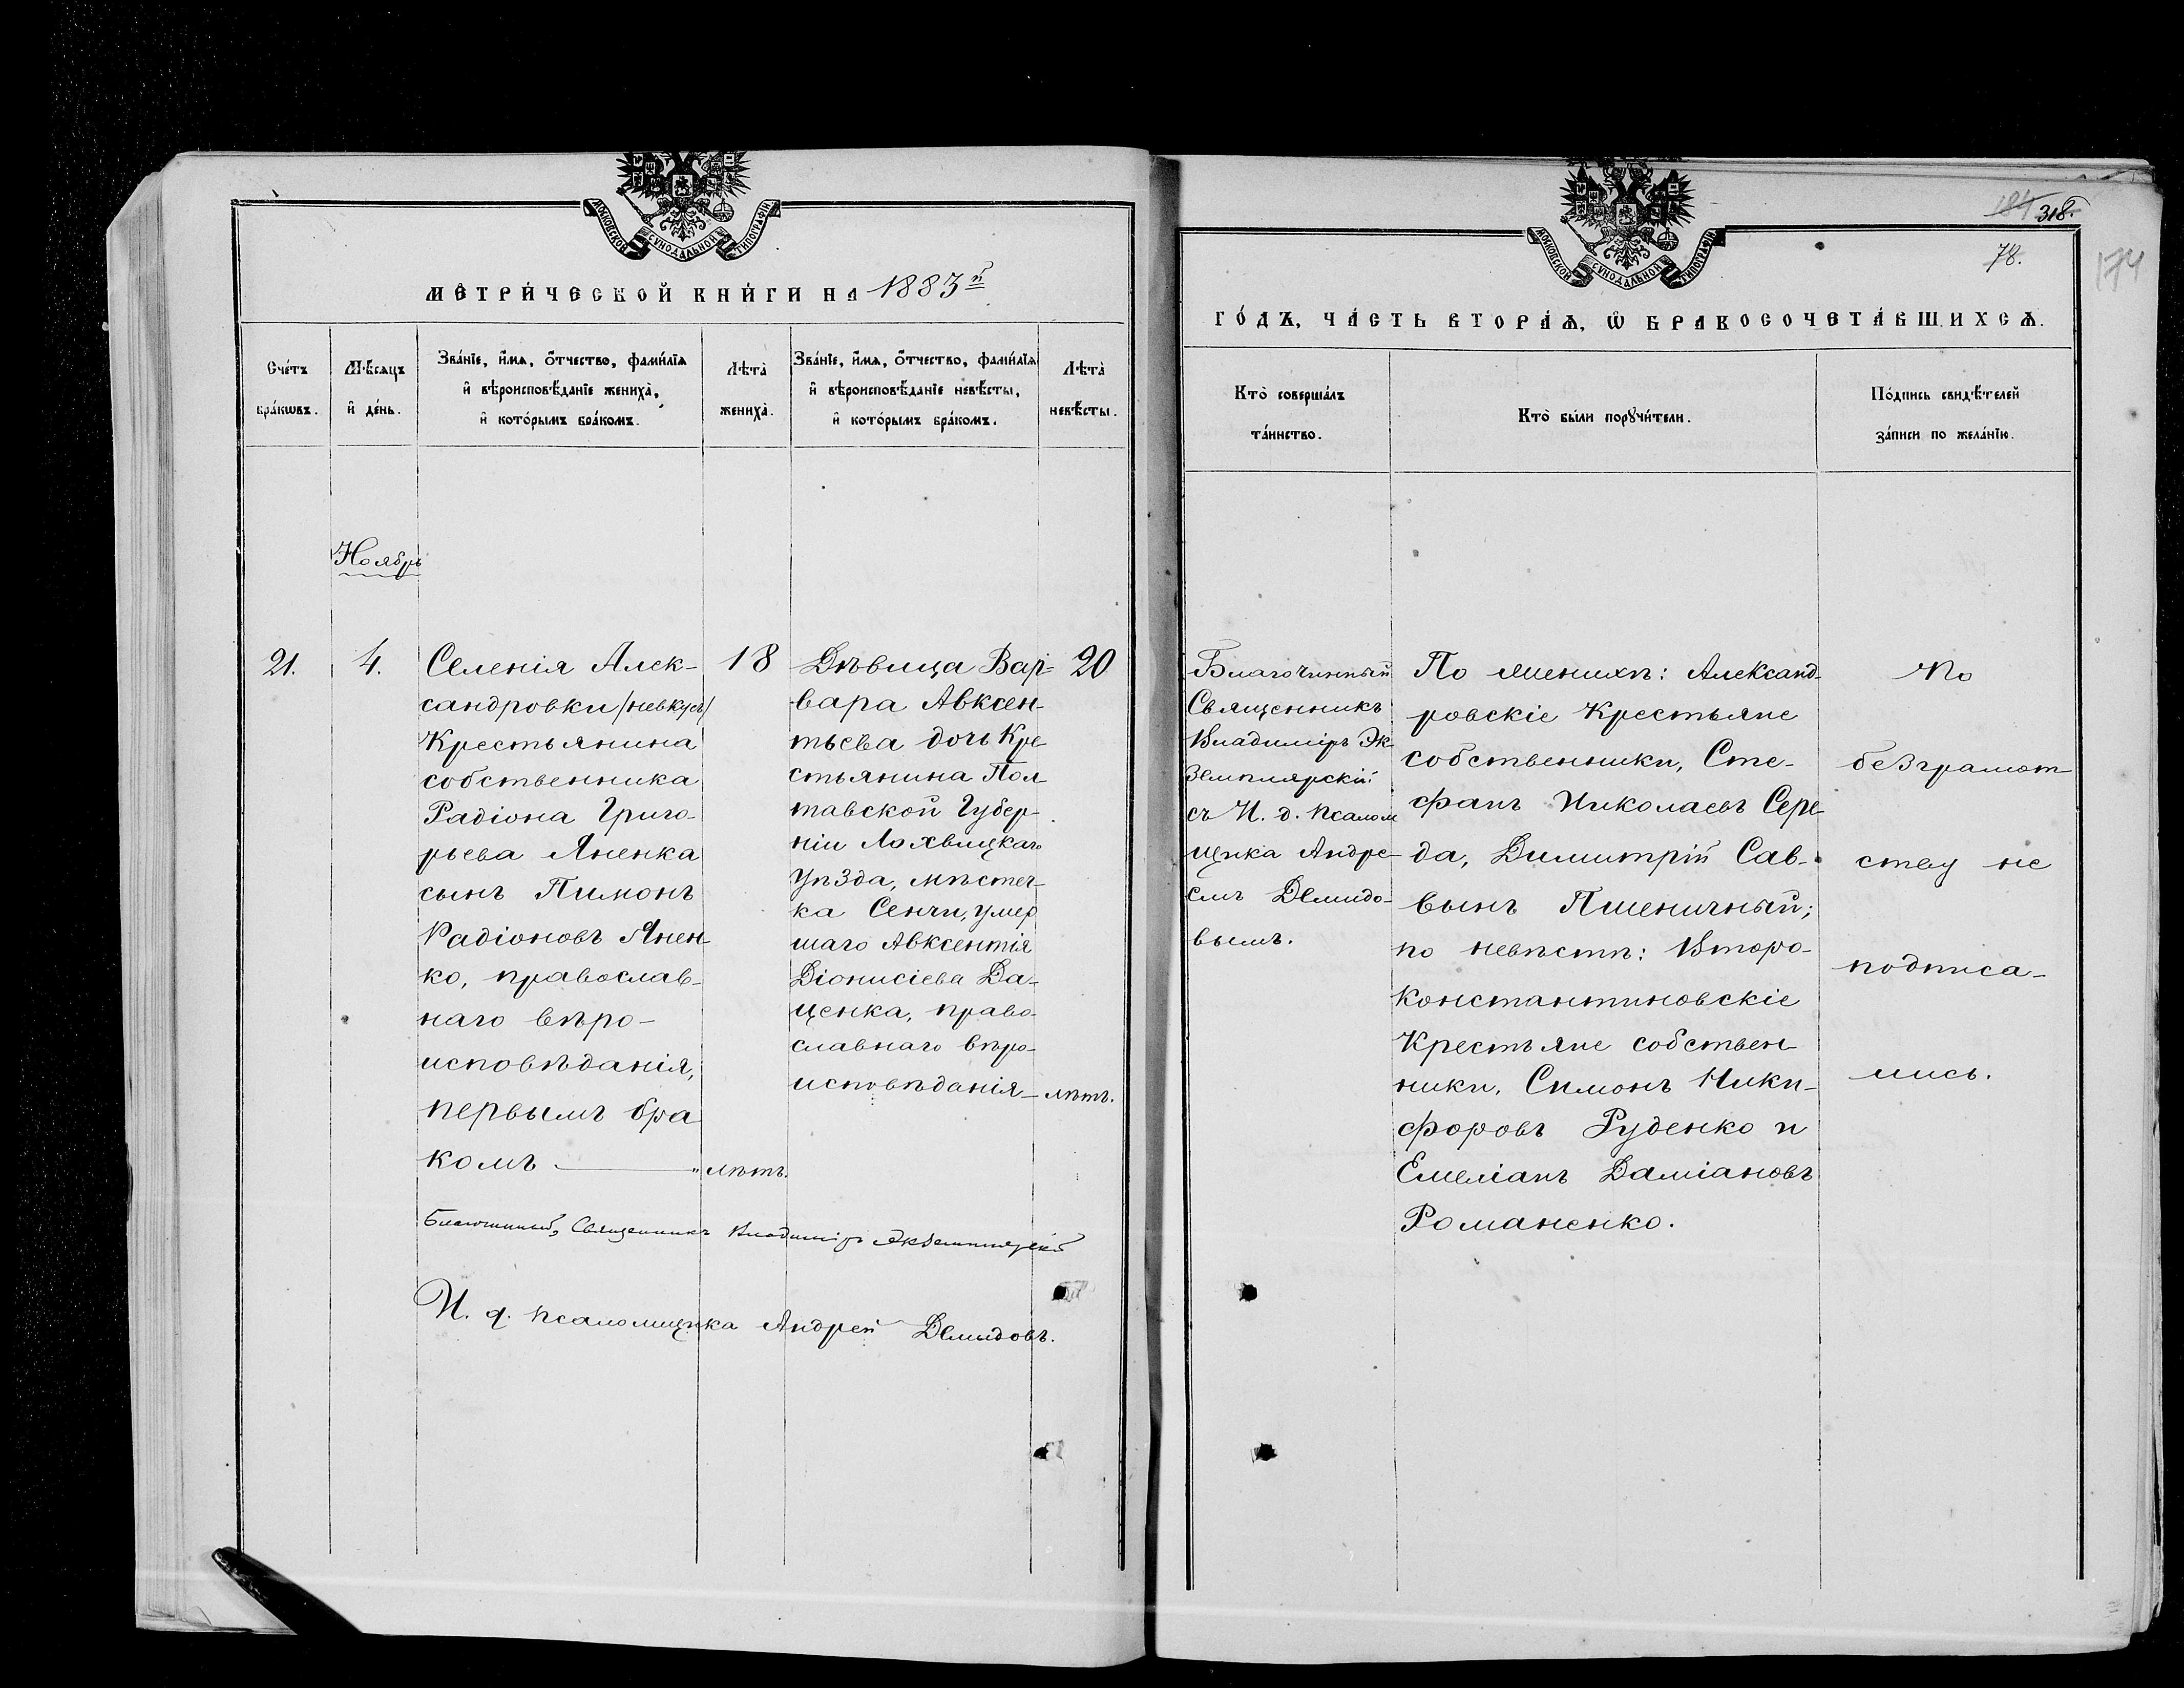 МОСКОВСКОЙ СѴНОДАЛЬНОЙ ТИПОГРАФІИ
МЕТРИ́ЧЕСКОЙ КНИ́ГИ НА 1883й
Сче́тъ
бра́кѡвъ.
Мѣ́сяцъ
и҆ де́нь.
Зва́нїе, и҆́мѧ, ѻ҆́тчество, фами́лїѧ
и҆ вѣроисповѣ́данїе жениха̀,
и҆ кото́рымъ бра́комъ.
Лѣта̀
жениха̀.
Зва́нїе, и҆́мѧ, ѻ҆́тчество, фами́лїѧ
и҆ вѣроисповѣ́данїе невѣ́сты,
и҆ кото́рымъ бра́комъ.
Лѣта̀
невѣ́сты.
Ноябрь
21.
4.
Селенія Алек-
сандровки /невкусъ/
Крестьянина
собственника
Радіона Григо-
рьева Яненка
сынъ Пимонъ
Радіоновъ Янен-
ко, православ-
наго вѣро-
исповѣданія,
первымъ бра
комъ
18
лѣтъ.
Дѣвица Вар-
вара Авксен-
тьева дочь Кре-
стьянина Пол-
тавской Губер-
ніи Лохвицкаго
Уѣзда, мѣстеч-
ка Сенчи, умер
шаго Авксентія
Діонисіева Да-
ценка, право-
славнаго вѣро-
исповѣданія
20
лѣтъ.
Благочинный, Священникъ Владиміръ Экземплярскій
И. д. псаломщика Андрей Демидовъ.
МОСКОВСКОЙ СѴНОДАЛЬНОЙ ТИПОГРАФІИ
184 318.
78.
174
ГО́ДЪ, ЧА́СТЬ ВТОРА́Ѧ, Ѽ БРАКОСОЧЕТА́ВШИХСѦ.
Кто̀ соверша́лъ
та́инство.
Кто̀ бы́ли порꙋчи́тели.
По́дпись свидѣ́телей
за́писи по жела́нїю.
Благочинный
Священникъ
Владиміръ Эк-
земплярскій
съ И. д. псалом
щика Андре-
емъ Демидо-
вымъ.
По женихѣ: Александ-
ровскіе Крестьяне
собственники, Сте-
фанъ Николаевъ Сере-
да, Димитрій Сав-
винъ Пшеничный;
по невѣстѣ: Второ-
Константиновскіе
Крестьяне собствен-
ники, Симонъ Ники-
форовъ Руденко и
Емеліанъ Даміановъ
Романенко.
По
безграмот
ству не
подписа-
лись.